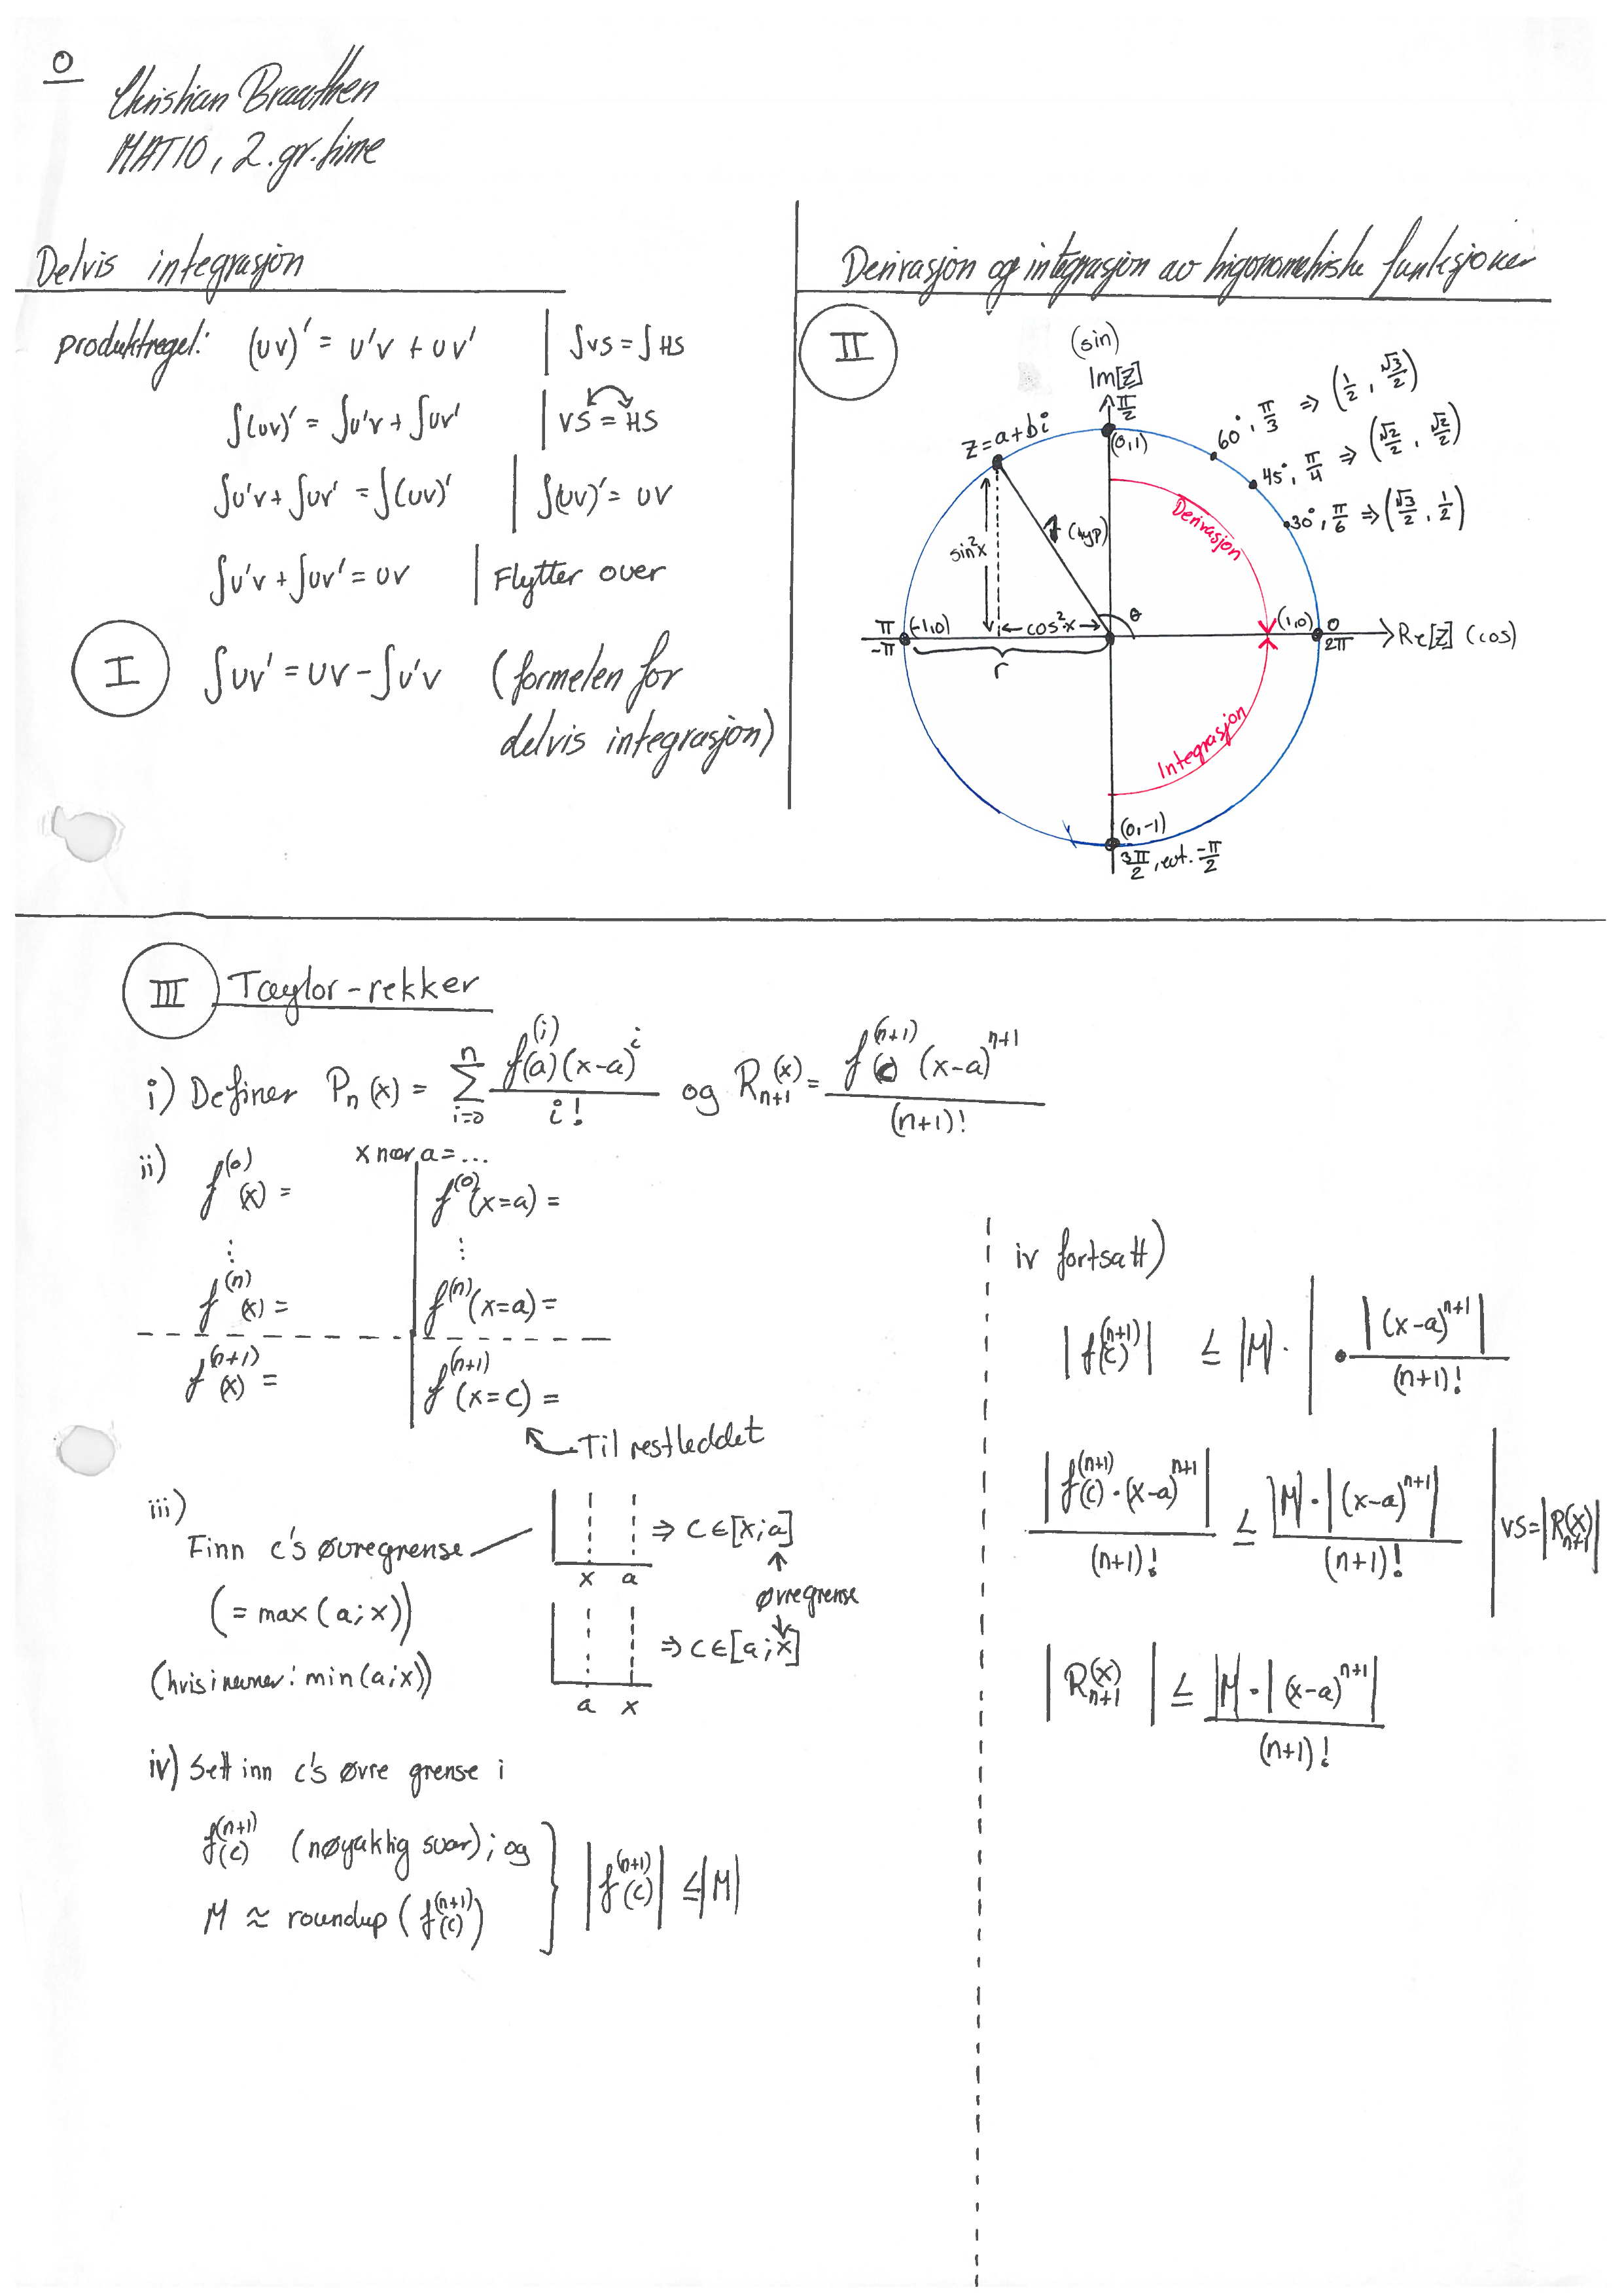 0
Christian Braathen
MAT10, 2.gr.time
Delvis integrasjon
produktregel: (uv)' = u'v + uv' | ∫VS = ∫HS
∫(uv)' = ∫u'v + ∫uv' | VS = HS
∫u'v + ∫uv' = ∫(uv)' | ∫(uv)' = uv
∫u'v + ∫uv' = uv | Flytter over
I ∫uv' = uv - ∫u'v (formelen for
delvis integrasjon)
Derivasjon og integrasjon av trigonometriske funksjoner
II
(sin)
Im[z]
π/2
(0,1)
z=a+bi
60°, π/3 ⇒ (1/2, √3/2)
45°, π/4 ⇒ (√2/2, √2/2)
30°, π/6 ⇒ (√3/2, 1/2)
Derivasjon
(hyp)
sin²x
cos²x
θ
r
π
-π
(-1,0)
(1,0)
0
2π
Re[z] (cos)
Integrasjon
(0,-1)
3π/2, evt. -π/2
III Taylor-rekker
i) Definer Pₙ(x) = Σ_{i=0}^{n} f^(i)(a)(x-a)^i / i! og R_{n+1}(x) = f^(n+1)(c)(x-a)^{n+1} / (n+1)!
ii) x nær a = ...
f^(0)(x) = | f^(0)(x=a) =
⋮ ⋮
f^(n)(x) = | f^(n)(x=a) =
f^(n+1)(x) = | f^(n+1)(x=c) =
Til restleddet
iii)
Finn c's øvregrense
(= max(a;x))
(hvis i nevner: min(a;x))
x a
⇒ c∈[x;a]
øvregrense
⇒ c∈[a;x]
a x
iv) Sett inn c's øvre grense i
f^(n+1)(c) (nøyaktig svar); og
M ≈ roundup(f^(n+1)(c))
|f^(n+1)(c)| ≤ |M|
iv fortsatt)
|f^(n+1)(c)| ≤ |M| · | · |(x-a)^{n+1}| / (n+1)!
|f^(n+1)(c)·(x-a)^{n+1}| / (n+1)! ≤ |M|·|(x-a)^{n+1}| / (n+1)! | VS=|R_{n+1}(x)|
|R_{n+1}(x)| ≤ |M|·|(x-a)^{n+1}| / (n+1)!